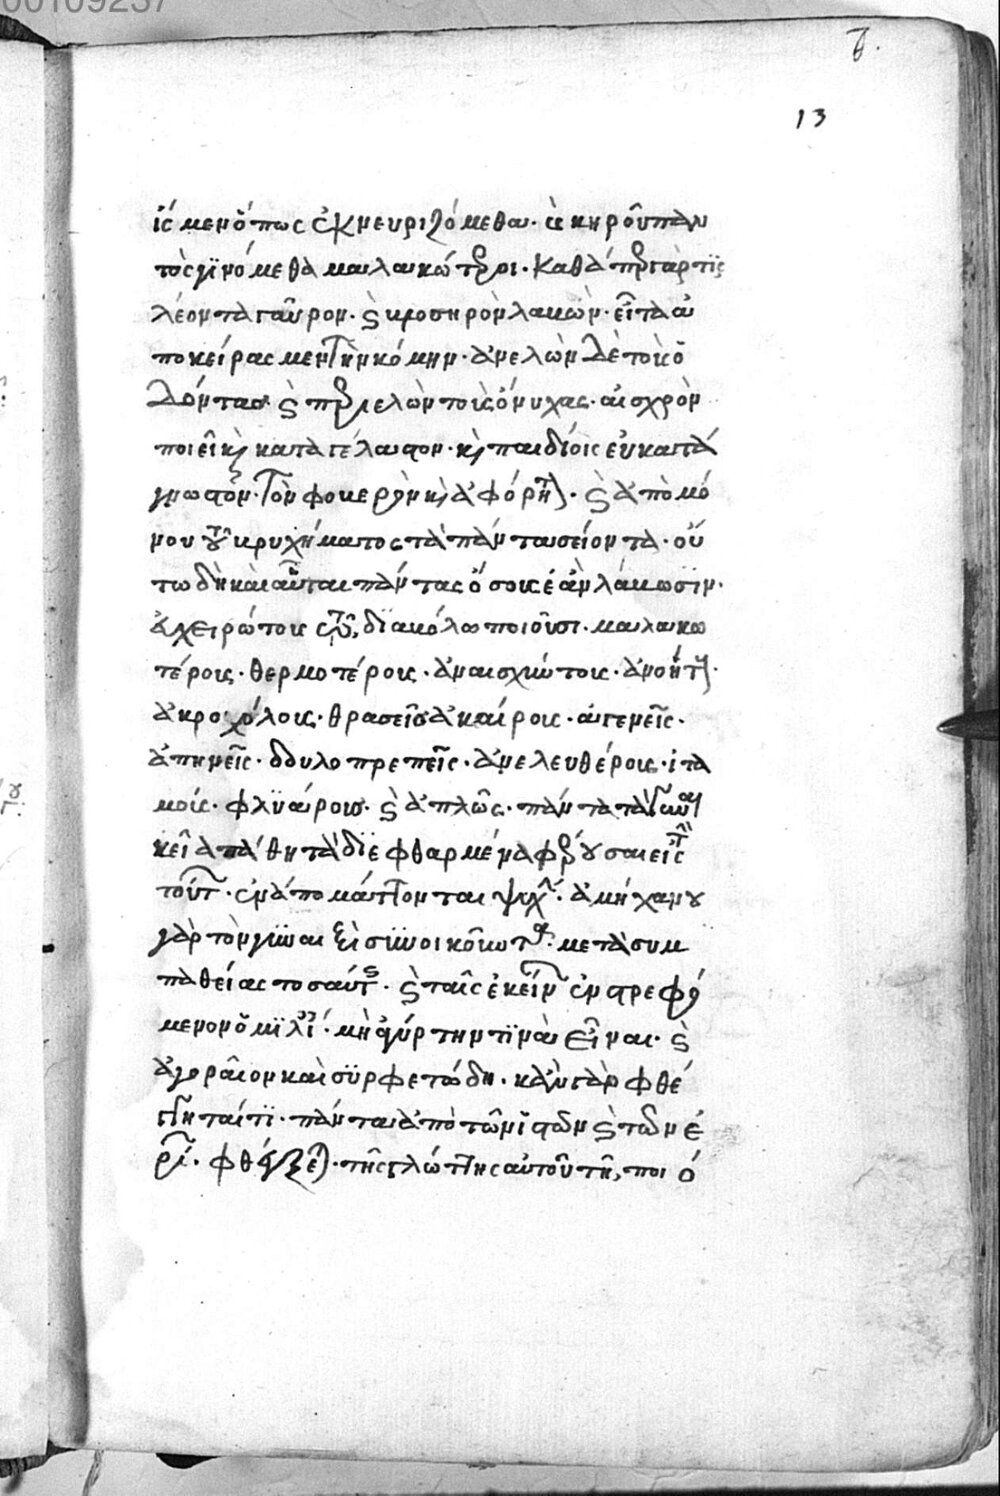 00109237
13
ἰς μεν ὅπως ἐκνευριζόμεθα· κηροῦ παν
τὸς γινόμεθα μαλακώτεροι· καθάπερ γάρ τις
λέοντα γαῦρον· καὶ βλοσυρὸν λαβὼν· εἶτα ἀ
ποκείρας μεν τὴν κόμην· ἀνελὼν δὲ τοὺς ὀ
δόντας καὶ περιελὼν τοὺς ὄνυχας· αἰσχρὸν
ποιεῖ καὶ καταγέλαστον· καὶ παιδίοις εὐκατά
γωνιστον· τὸν φοβερὸν καὶ ἀφόρητον· καὶ ἀπὸ μό
νου τοῦ βρυχήματος τὰ πάντα σείοντα· οὕ
τω δὴ καὶ αὗται πάντας ὅσους ἐὰν λάβωσιν·
εὐχειρώτους τῷ διαβόλῳ ποιοῦσι· μαλακω
τέροις· θερμοτέροις· ἀναισχύντοις· ἀνοήτοις·
ἀκροχόλοις· θρασεῖς ἀκαίροις· ἀγενεῖς·
ἀπηνεῖς· δουλοπρεπεῖς· ἀνελευθέροις· ἰτα
μοῖς· φλυάροις· καὶ ἁπλῶς· πάντα τὰ γυναι
κεῖα πάθη τὰ διεφθαρμένα φέρουσαι εἰς τὰς
τούτων· ἐναπομάττονται ψυχάς· ἀμήχανον
γὰρ τὸν γυναιξὶ συνοικοῦντα· μετὰ συμ
παθείας τοσαύτης· καὶ ταῖς ἐκείνων ἐντρεφό
μενον ὁμιλίαις· μὴ ἀγύρτην τινὰ εἶναι· καὶ
ἀγοραῖον καὶ συρφετώδη· κἂν γὰρ φθέ
γγηταί τι· πάντα ἀπὸ τῶν ἱστῶν καὶ τῶν ἐ
ρίων· φθέγξεται· τῆς γλώττης αὐτοῦ τῇ ποι ό